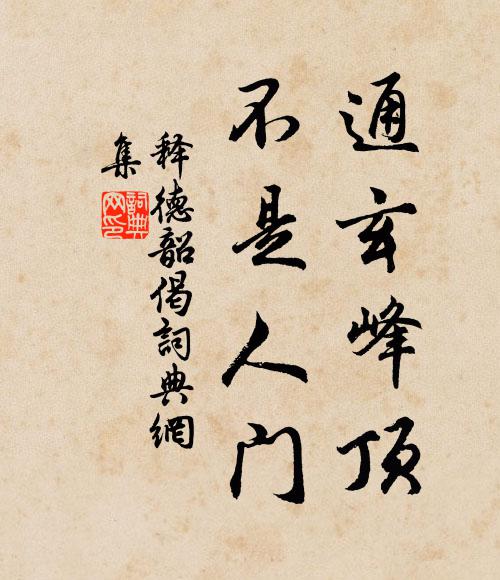 通玄峰顶
不是人门
释德韶偈詞典網
集
詞典
网印